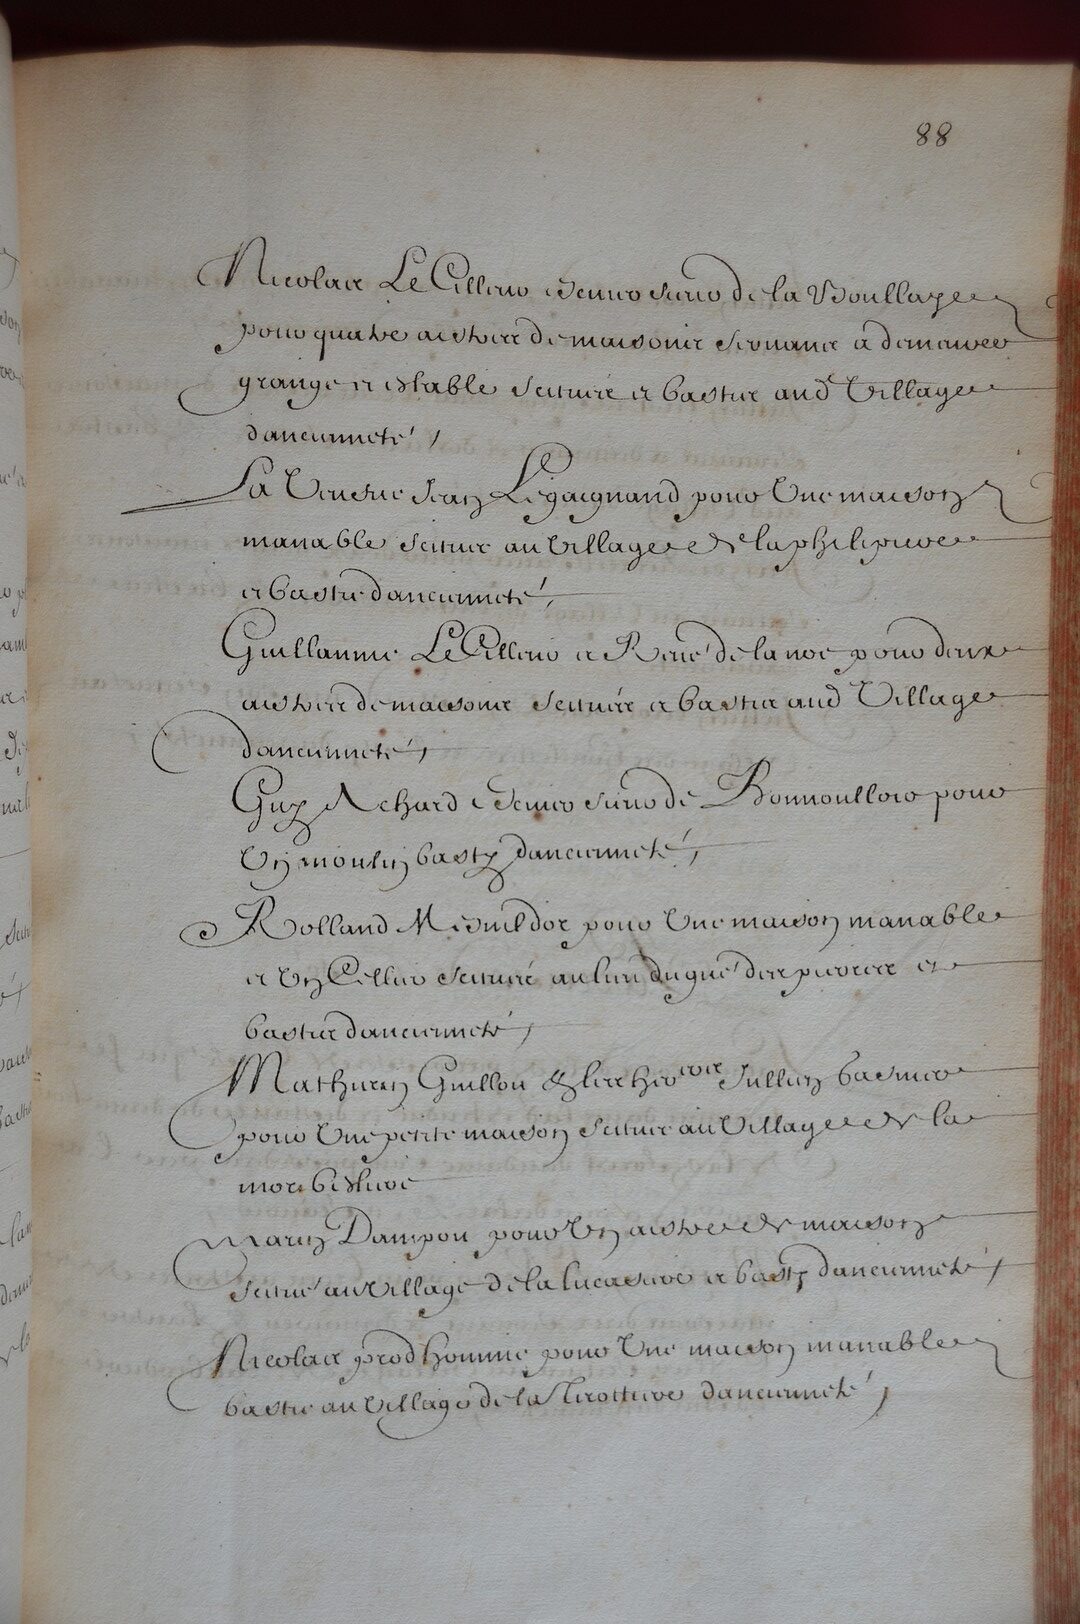 88
Nicolas Le Cellier Escuier Sieur de la Boullaye
pour quatre aistres de maisons servans a demeurer
grange et estable scituéz et bastiz aud Village
dancienneté /
La Veufve Jean Legaignard pour Une maison
manable scituée au Village de la phelipiere
et bastie dancienneté /
Guillaume Le Cellier et René de la noe pour deux
aistres de maisons scituéz et bastiz aud Village
danciennete /
Guy Richard Escuier Sieur de Bonnoullois pour
Un moulin basty dancienneté /
Rolland Mesnildor pour Une maison manable
et Un Cellier scituéz au lieu du gué des pierres et
bastiz dancienneté /
Mathurin Guillou & les hers Jullien basmer
pour Une petite maison scituée au Village de la
Marin Dampou pour Un aistre de maison
scitué au village de la lucasiere et basty dancienneté /
Nicolas prodhomme pour Une maison manable
bastie au Village de la dancienneté /